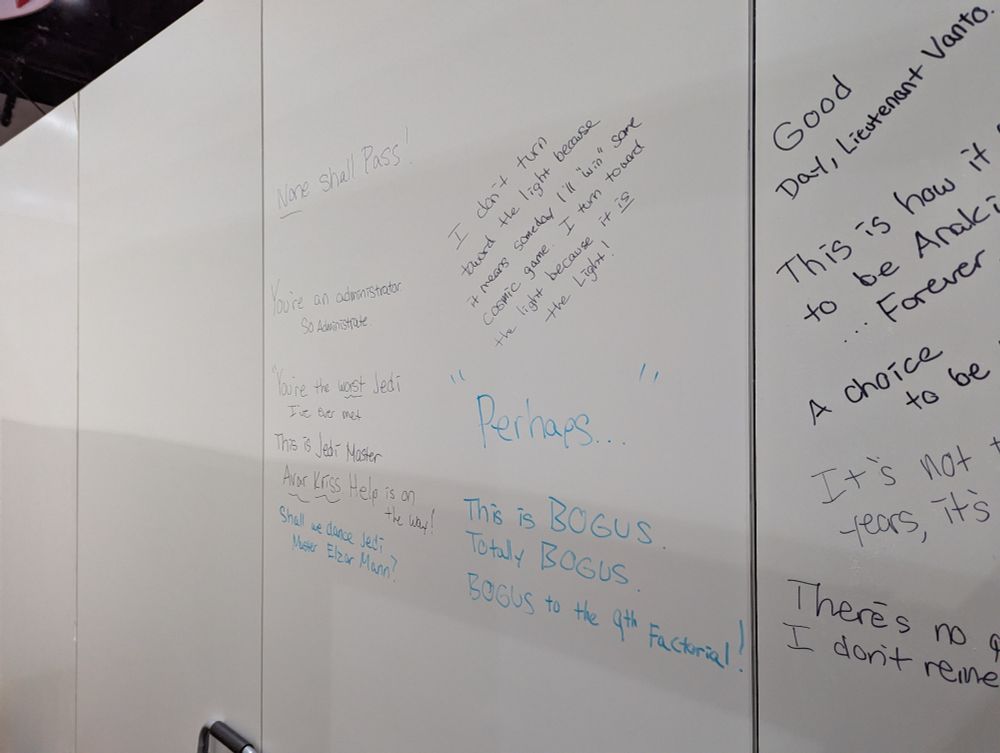 None shall Pass!
You're an administrator
So Administrate.
"You're the worst Jedi
I've ever met
This is Jedi Master
Avar Kriss Help is on
the way!
Shall we dance Jedi
Master Elzar Mann?
I don't turn
toward the light because
it means someday I'll "win" some
cosmic game. I turn toward
the light because it is
the Light!
"Perhaps..."
This is BOGUS.
Totally BOGUS.
BOGUS to the 9th Factorial!
Good
Day, Lieutenant Vanto.
This is how it
to be Anaki
... Forever
A choice
to be
It's not
years, it's
There's no
I don't reme